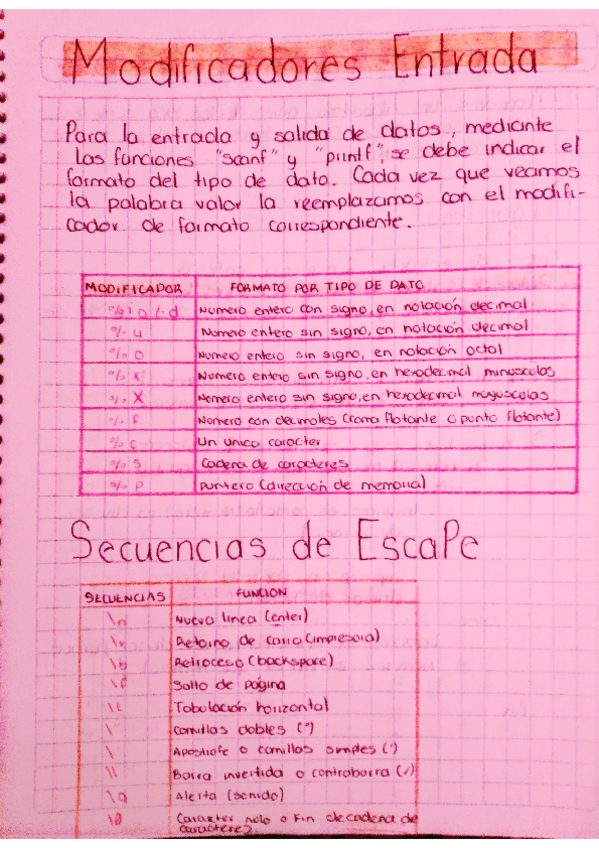 Modificadores Entrada
Para la entrada y salida de datos, mediante
las funciones "scanf" y "printf", se debe indicar el
formato del tipo de dato. Cada vez que veamos
la palabra valor la reemplazamos con el modifi-
cador de formato correspondiente.
MODIFICADOR FORMATO POR TIPO DE DATO
%i o %d Numero entero con signo, en notación decimal
%u Numero entero sin signo, en notación decimal
%o Numero entero sin signo, en notación octal
%x Numero entero sin signo, en hexadecimal minusculas
%X Numero entero sin signo, en hexadecimal mayusculas
%f Numero con decimales (coma flotante o punto flotante)
%c Un único caracter
%s Cadena de caracteres
%p Puntero (dirección de memoria)
Secuencias de Escape
SECUENCIAS FUNCION
\n Nueva linea (enter)
Retorno de carro (impresora)
\b Retroceso (backspace)
\f Salto de página
\t Tabulación horizontal
\" Comillas dobles (")
\ Apostrofe o comillas simples (')
\\ Barra invertida o contrabarra (/)
\a Alerta (sonido)
\0 Caracter nulo o Fin de cadena de
caracteres